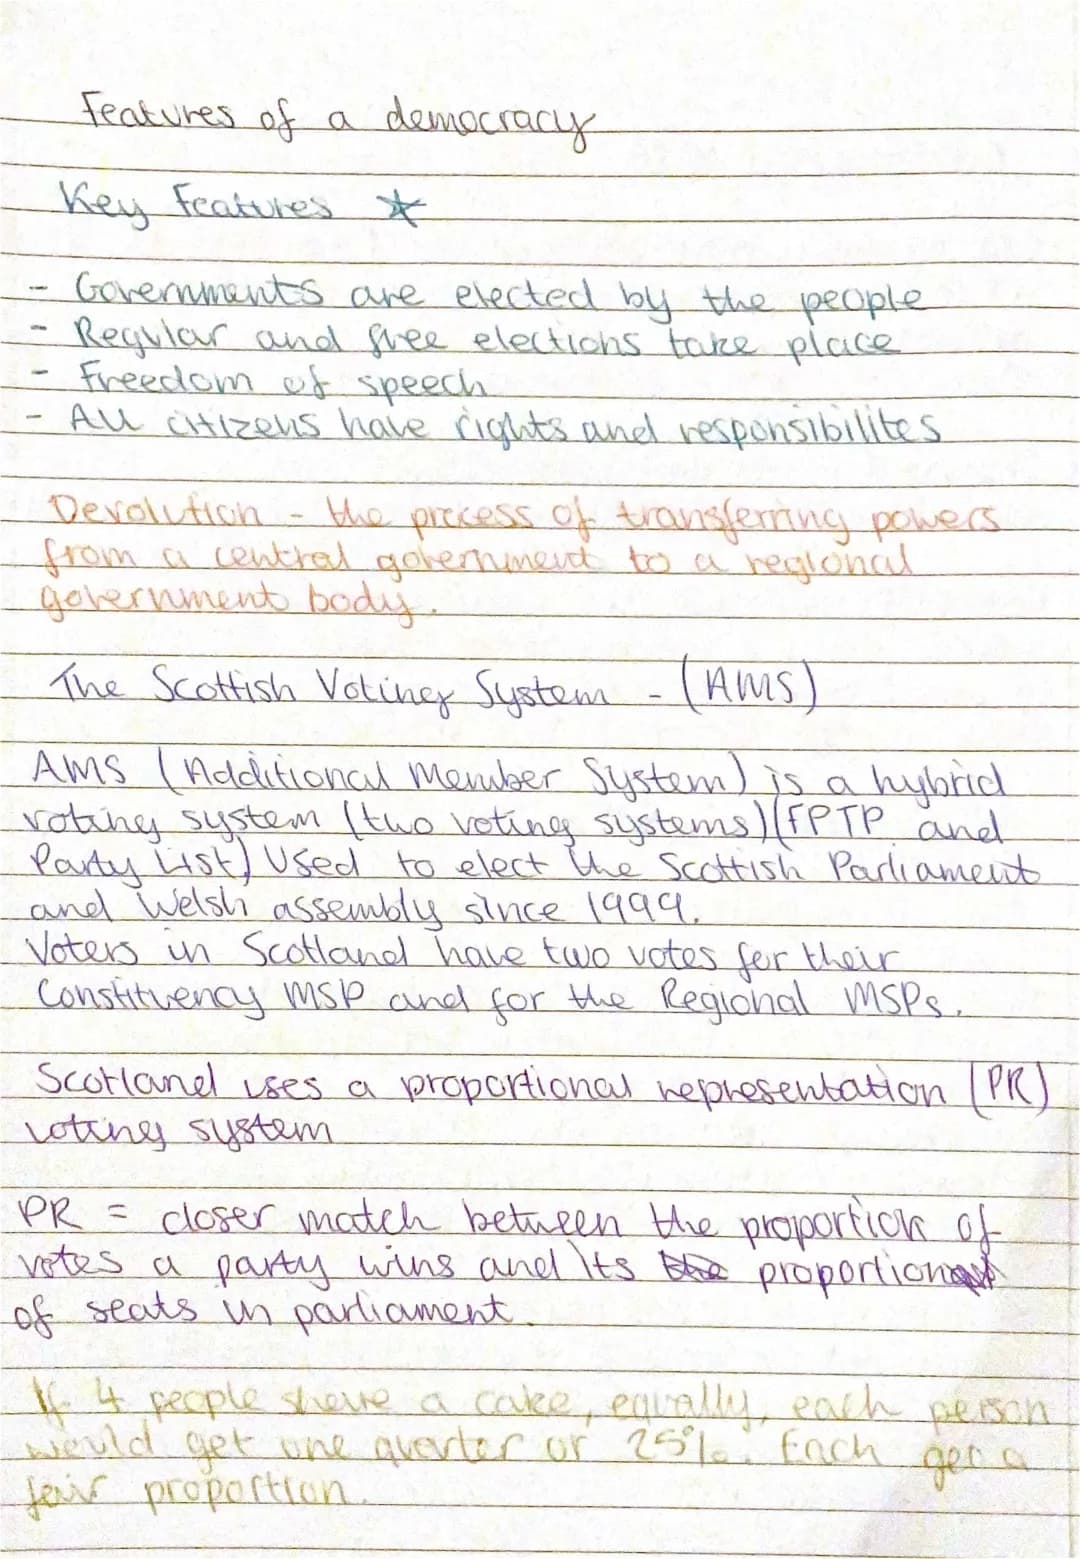 Features of a democracy
Key Features ☆
- Governments are elected by the people
- Regular and free elections take place
- Freedom of speech
- All citizens have rights and responsibilites
Devolution - the process of transferring powers
from a central government to a regional
government body.
The Scottish Voting System - (AMS)
AMS (Additional Member System) is a hybrid
voting system (two voting systems)(FPTP and
Party List) Used to elect the Scottish Parliament
and Welsh assembly since 1999.
Voters in Scotland have two votes for their
Constituency MSP and for the Regional MSPs.
Scotland uses a proportional representation (PR)
voting system
PR = closer match between the proportion of
votes a party wins and its the proportion
of seats in parliament.
If 4 people share a cake, equally, each person
would get one quarter or 25%. Each get a
fair proportion.